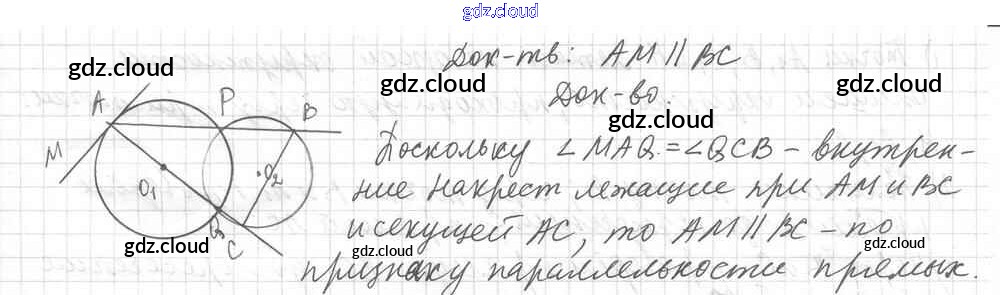 gdz.cloud
Док-ть: AM || BC
gdz.cloud
gdz.cloud
Док-во.
gdz.cloud
A P B
M
O₁ O₂
Q C
Поскольку ∠MAQ = ∠QCB – внутрен-
ние накрест лежащие при AM и BC
gdz.cloud
gdz.cloud
и секущей AC, то AM || BC – по
gdz.cloud
gdz.cloud
признаку параллельности прямых.
gdz.cloud
gdz.cloud